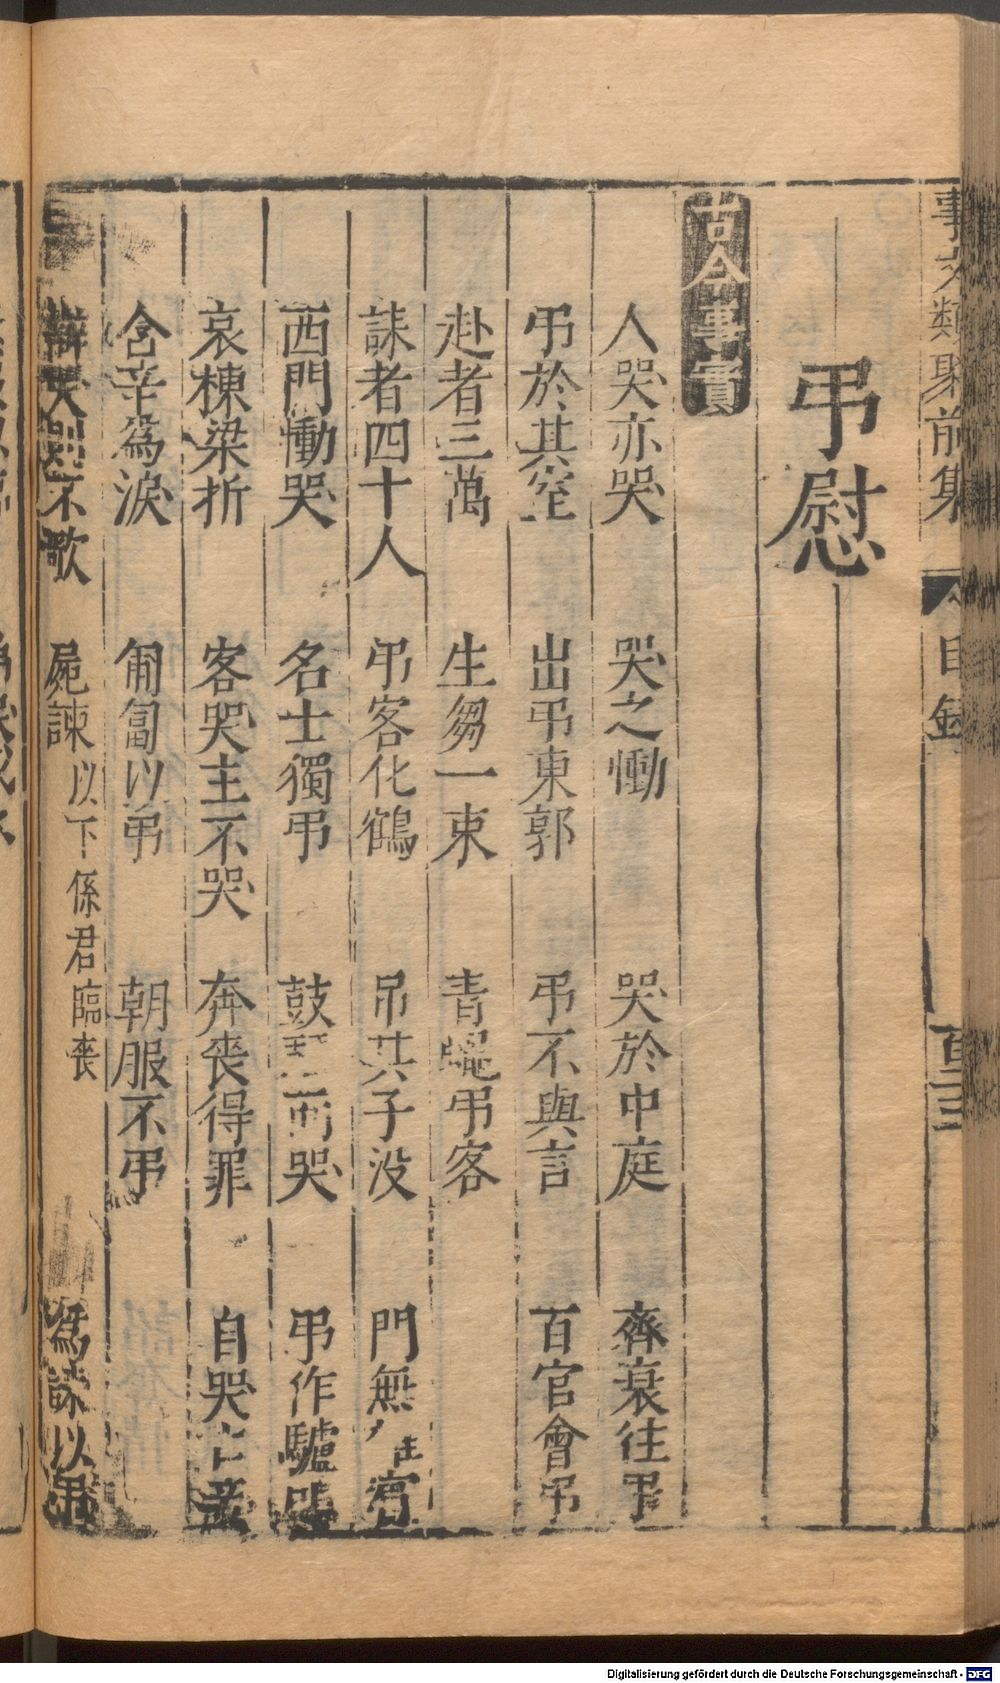 事文類聚前集
目錄
百三
弔慰
古今事實
人哭亦哭 哭之慟 哭於中庭 齊衰往弔
弔於其室 出弔東郭 弔不與言 百官會弔
赴者三萬 生芻一束 青蠅弔客
誄者四十人 弔客化鶴 吊其子没 門無 賓
西門慟哭 名士獨弔 鼓 而哭 弔作驢
哀棟梁折 客哭主不哭 奔喪得罪 自哭
含辛為淚 匍匐以弔 朝服不弔
哭則不歌 屍諫 以下係君臨喪 為誄以弔
Digitalisierung gefördert durch die Deutsche Forschungsgemeinschaft - DFG